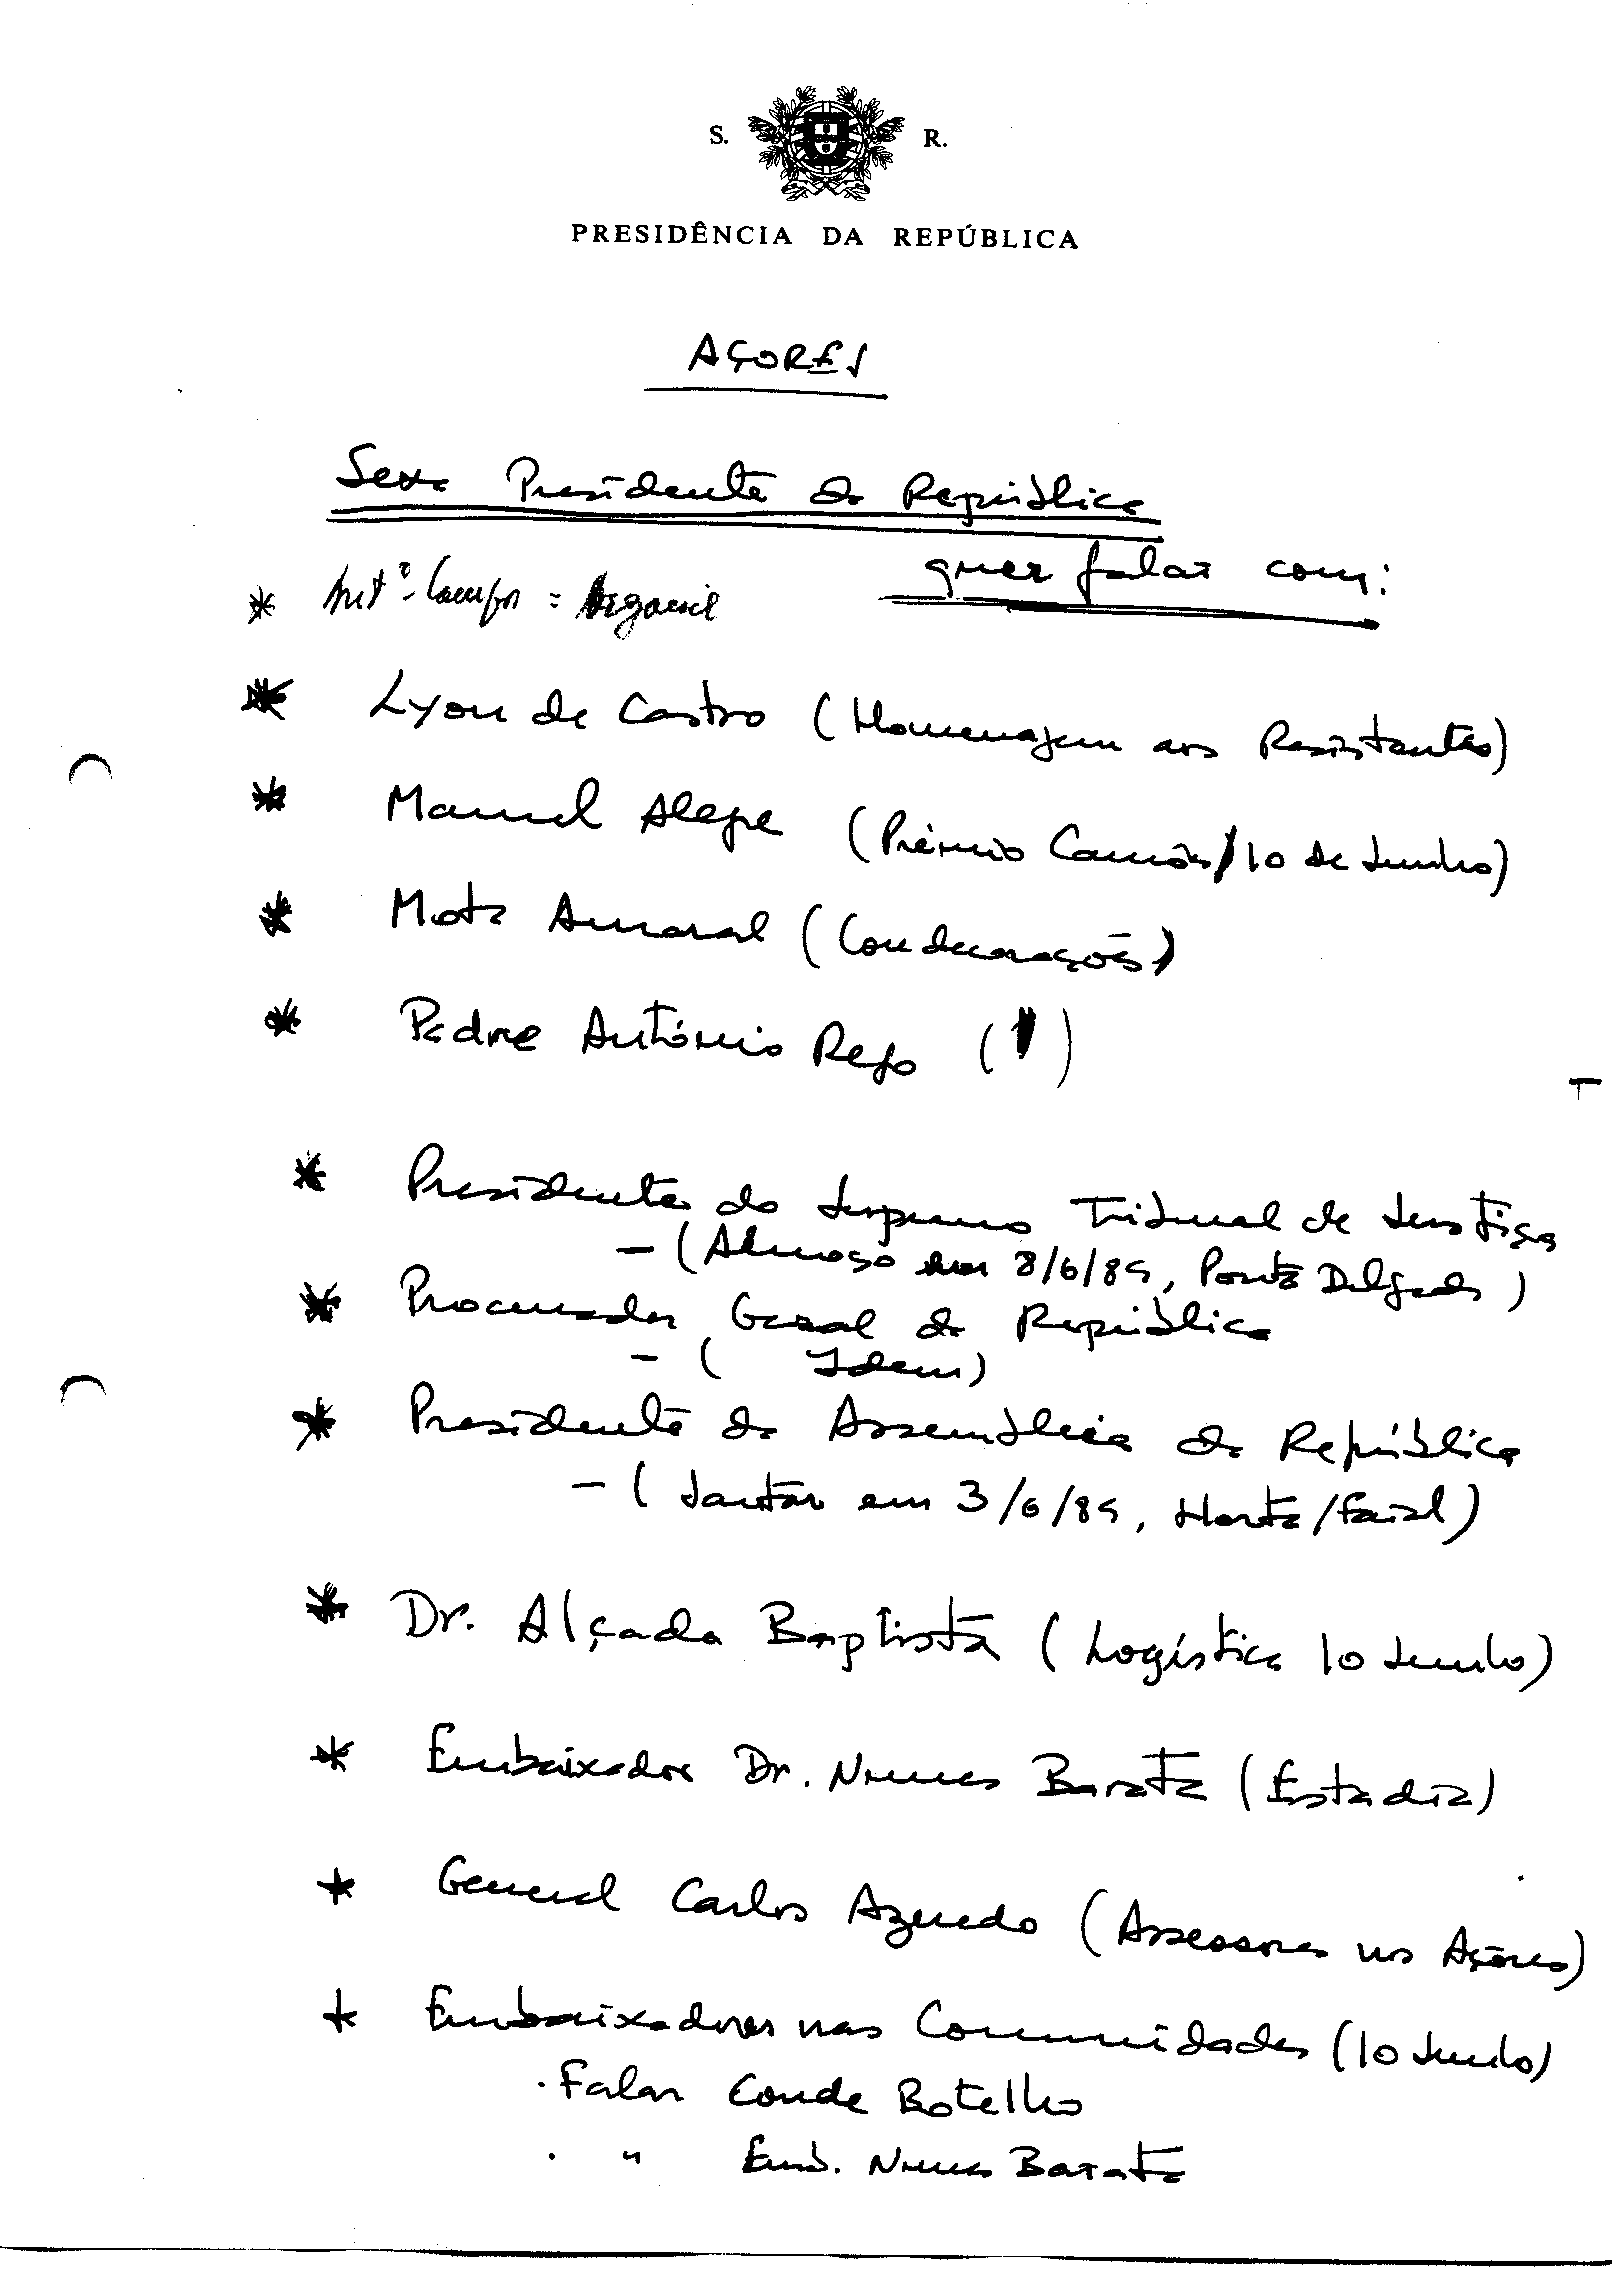 S. R.
PRESIDÊNCIA DA REPÚBLICA
AÇORES
Sexa Presidente da República
quer falar com:
* Antº Campos = Arganil
* Lyon de Castro (Homenagem aos Resistentes)
* Manuel Alegre (Prémio Camões/10 de Junho)
* Mota Amaral (Condecorações)
* Padre António Rego ( )
* Presidente do Supremo Tribunal de Justiça
- (Almoço em 8/6/89, Ponta Delgada)
* Procurador Geral da República
- ( Idem)
* Presidente da Assembleia da República
- (Jantar em 3/6/89, Horta/Faial)
* Dr. Alçada Baptista (Logística 10 Junho)
* Embaixador Dr. Nunes Barata (Estadia)
* General Carlos Azeredo (Assessores nos Açores)
* Embaixadores nas Comunidades (10 Junho)
. Falar Conde Botelho
. " Emb. Nunes Barata